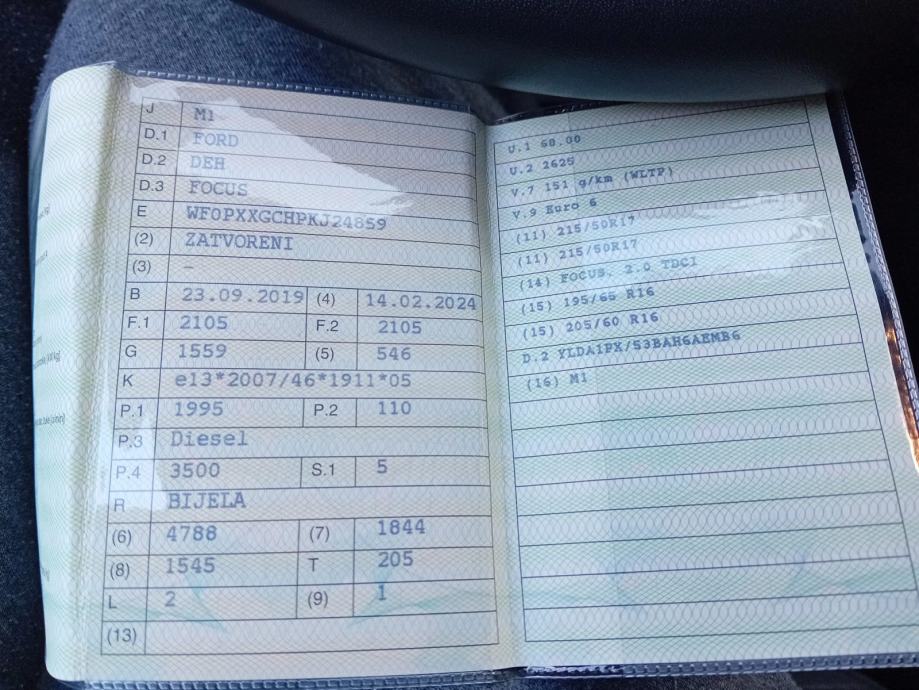 J M1
D.1 FORD
D.2 DEH
D.3 FOCUS
E WF0PXXGCHPKJ24859
(2) ZATVORENI
(3) –
B 23.09.2019 (4) 14.02.2024
F.1 2105 F.2 2105
G 1559 (5) 546
K e13*2007/46*1911*05
P.1 1995 P.2 110
P.3 Diesel
P.4 3500 S.1 5
R BIJELA
(6) 4788 (7) 1844
(8) 1545 T 205
L 2 (9) 1
(13)
U.1 68.00
U.2 2625
V.7 151 g/km (WLTP)
V.9 Euro 6
(11) 215/50R17
(11) 215/50R17
(14) FOCUS. 2.0 TDCI
(15) 195/65 R16
(15) 205/60 R16
D.2 YLDA1PX/53BAH6AEMB6
(16) M1